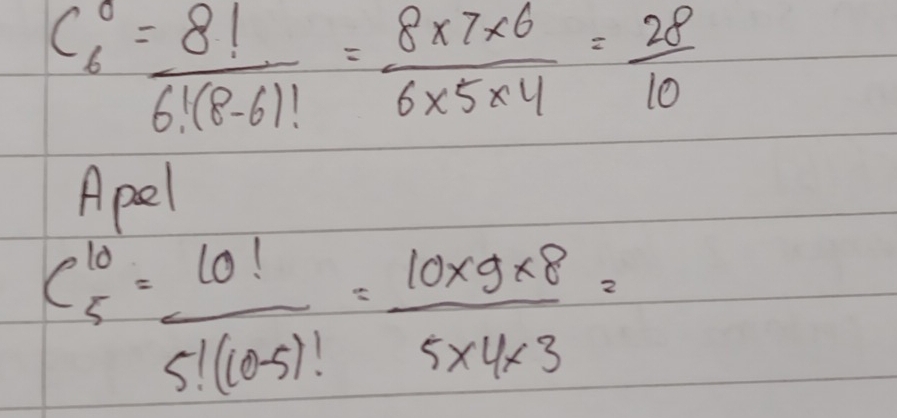 C₆⁸ = 8! / 6!(8-6)! = 8×7×6 / 6×5×4 = 28 / 10
Apel
C₅¹⁰ = 10! / 5!(10-5)! = 10×9×8 / 5×4×3 =